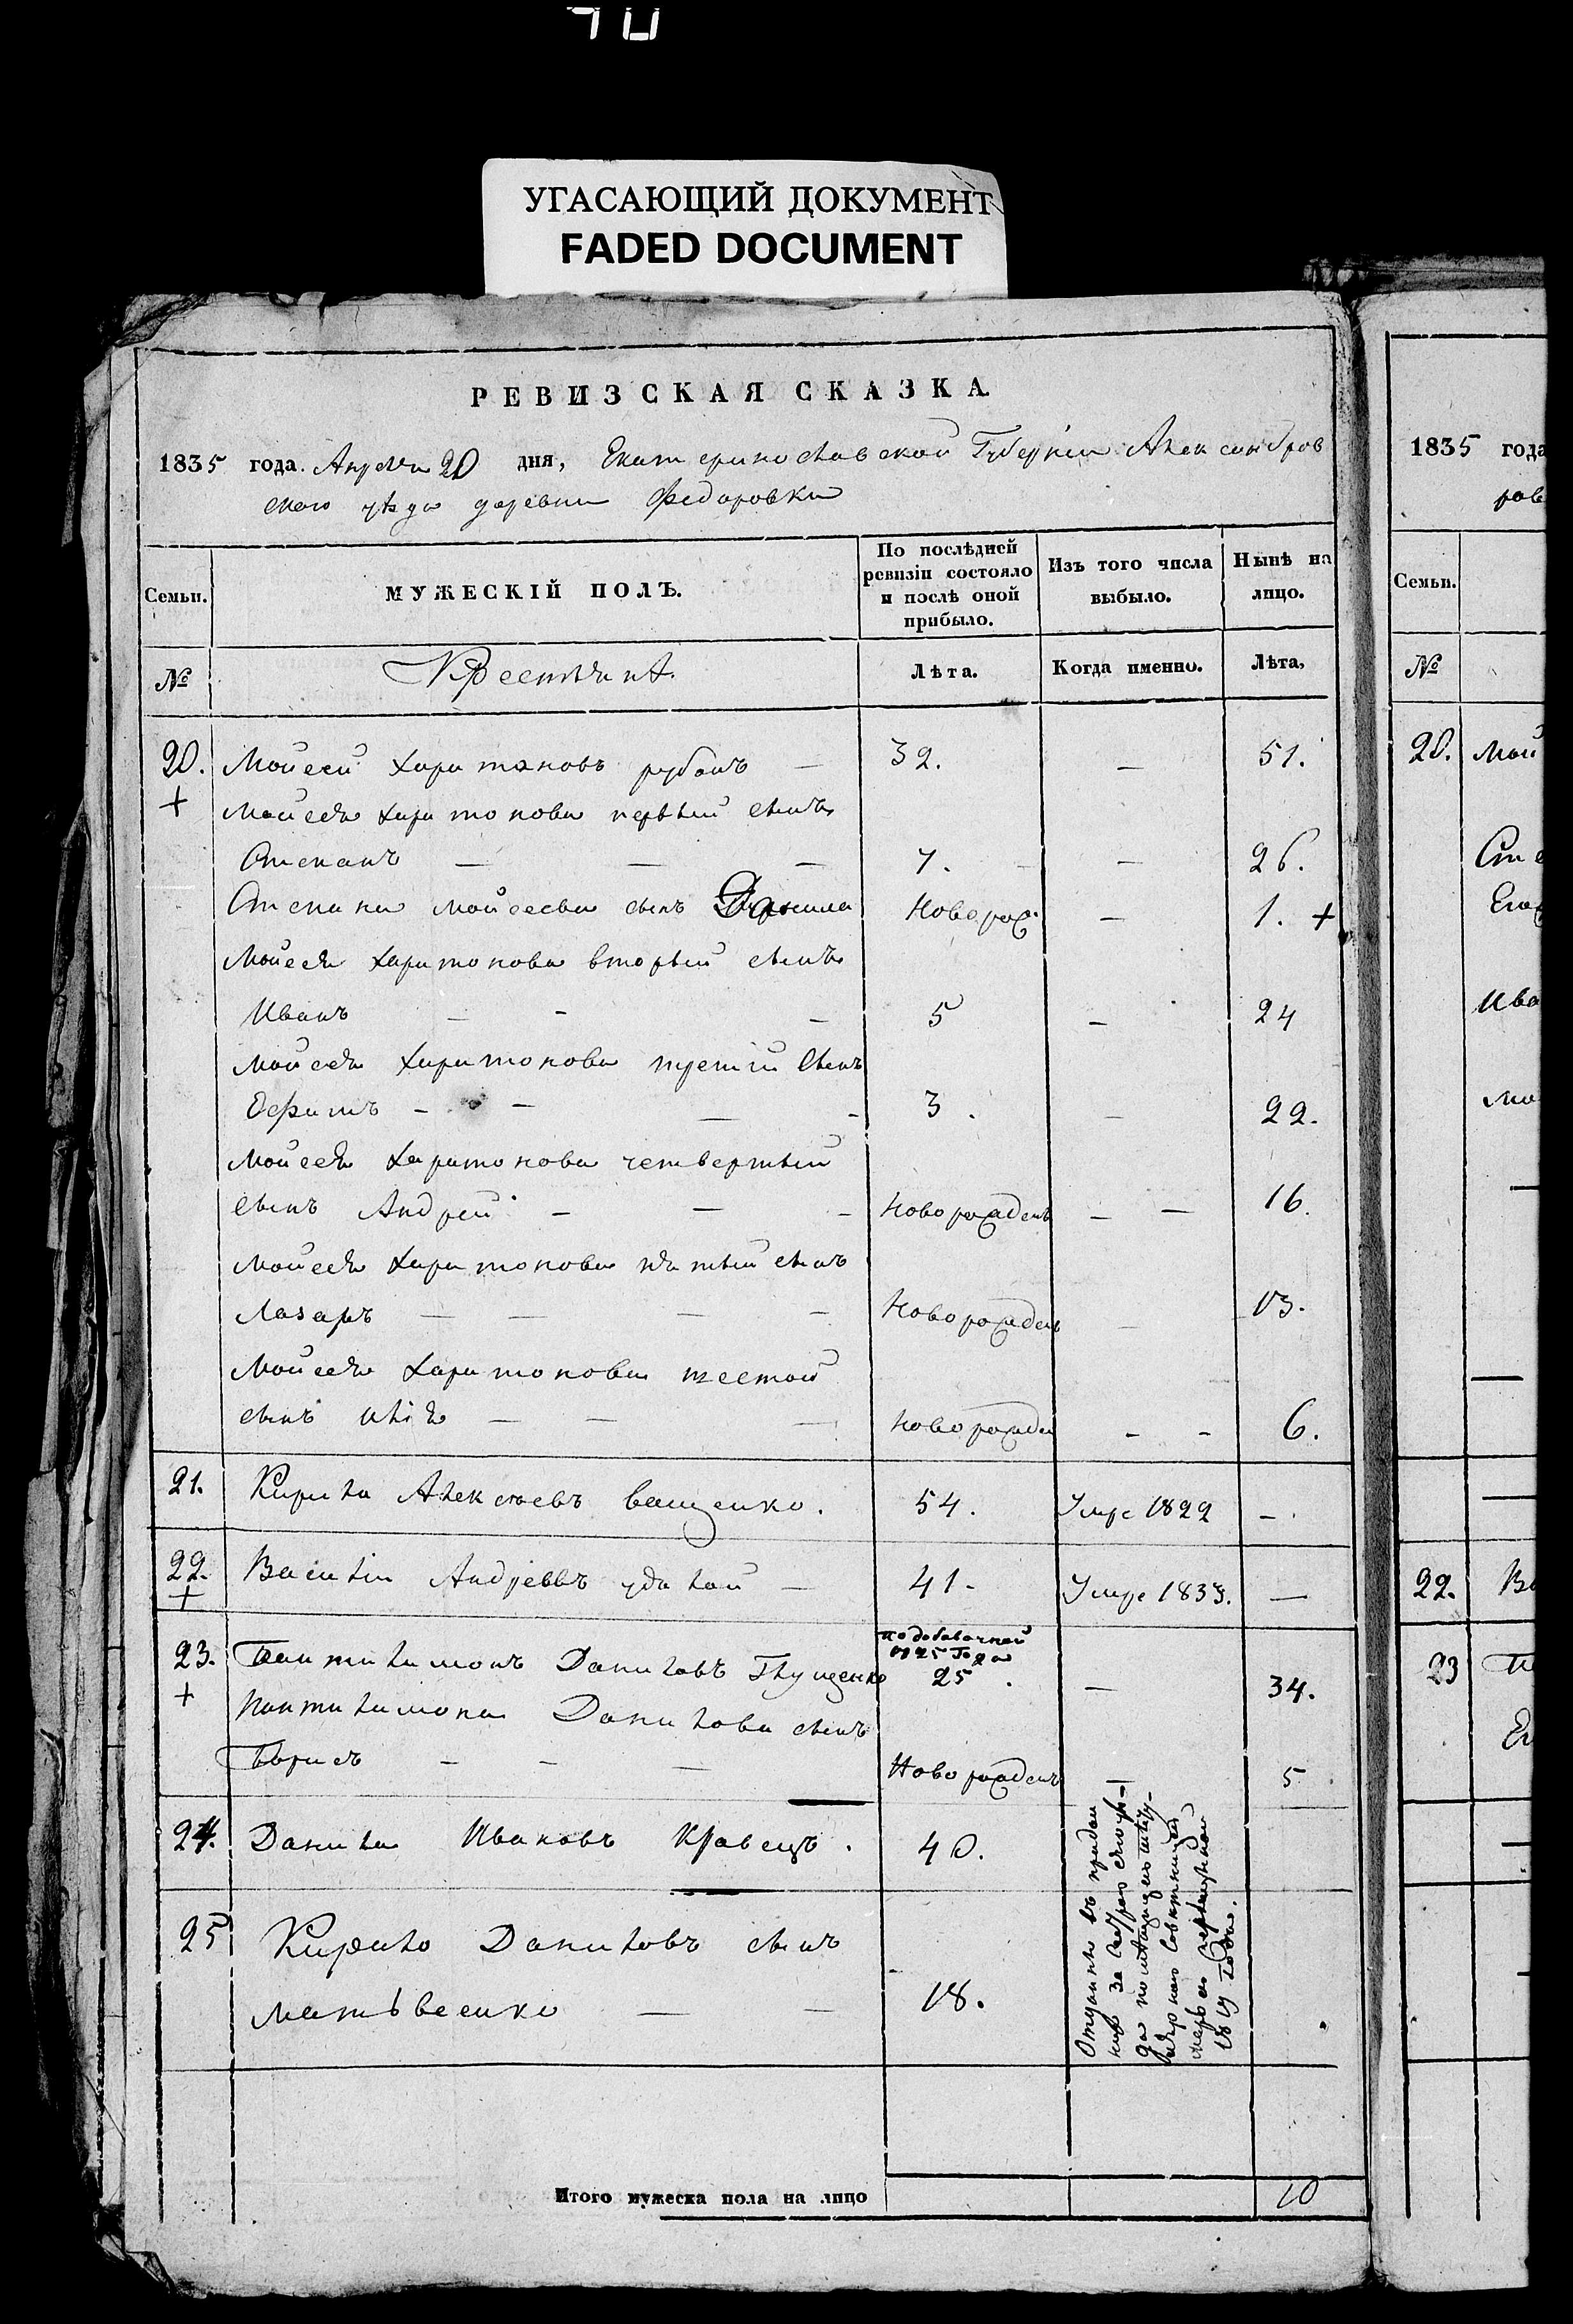 УГАСАЮЩИЙ ДОКУМЕНТ
FADED DOCUMENT
РЕВИЗСКАЯ СКАЗКА
1835 года. Апреля 20 дня, Екатеринославской Губерніи Александров
ского уѣзда деревни Федоровки
Семьи. МУЖЕСКІЙ ПОЛЪ. По послѣдней ревизіи состояло и послѣ оной прибыло. Изъ того числа выбыло. Нынѣ на лицо.
№ Крестьянъ. Лѣта. Когда именно. Лѣта,
20. Мойсей Харитоновъ рубанъ — 32. — 51.
+ Мойсея Харитонова первый сынъ
Степанъ — — — 7. — 26.
Степана Мойсеева сынъ Данила Новорож: — 1. +
Мойсея Харитонова вторый сынъ
Иванъ — - — 5 — 24
Мойсея Харитонова третій сынъ
Ефимъ — - — - 3. — 22.
Мойсея Харитонова четвертый
сынъ Андрей — — - Новорожденъ — — 16.
Мойсея Харитонова пятый сынъ
Лазарь — — — — Новорожденъ — 13.
Мойсея Харитонова шестой
сынъ Илія — — — Новорожден - - 6.
21. Кирила Алексѣевъ ващенко. 54. Умре 1822 —.
22. Василій Андреевъ удалой — 41. Умре 1833. —
+
23. Пантилимонъ Даниловъ Глущенко подобавочной 1825 Года 25. — 34.
+ Пантилимона Данилова сынъ
Борисъ — - — Новорожденъ 5.
24. Данила Ивановъ Кравецъ. 40.
25 Кирило Даниловъ сынъ
матвѣенко — — 18.
Отданы въ придан
1819 Года.
Итого мужеска пола на лицо 10
1835 года
ров
Семьи.
№
20. Мой
Сте
Его
Ива
Мо
22. Ва
23 П
Ег